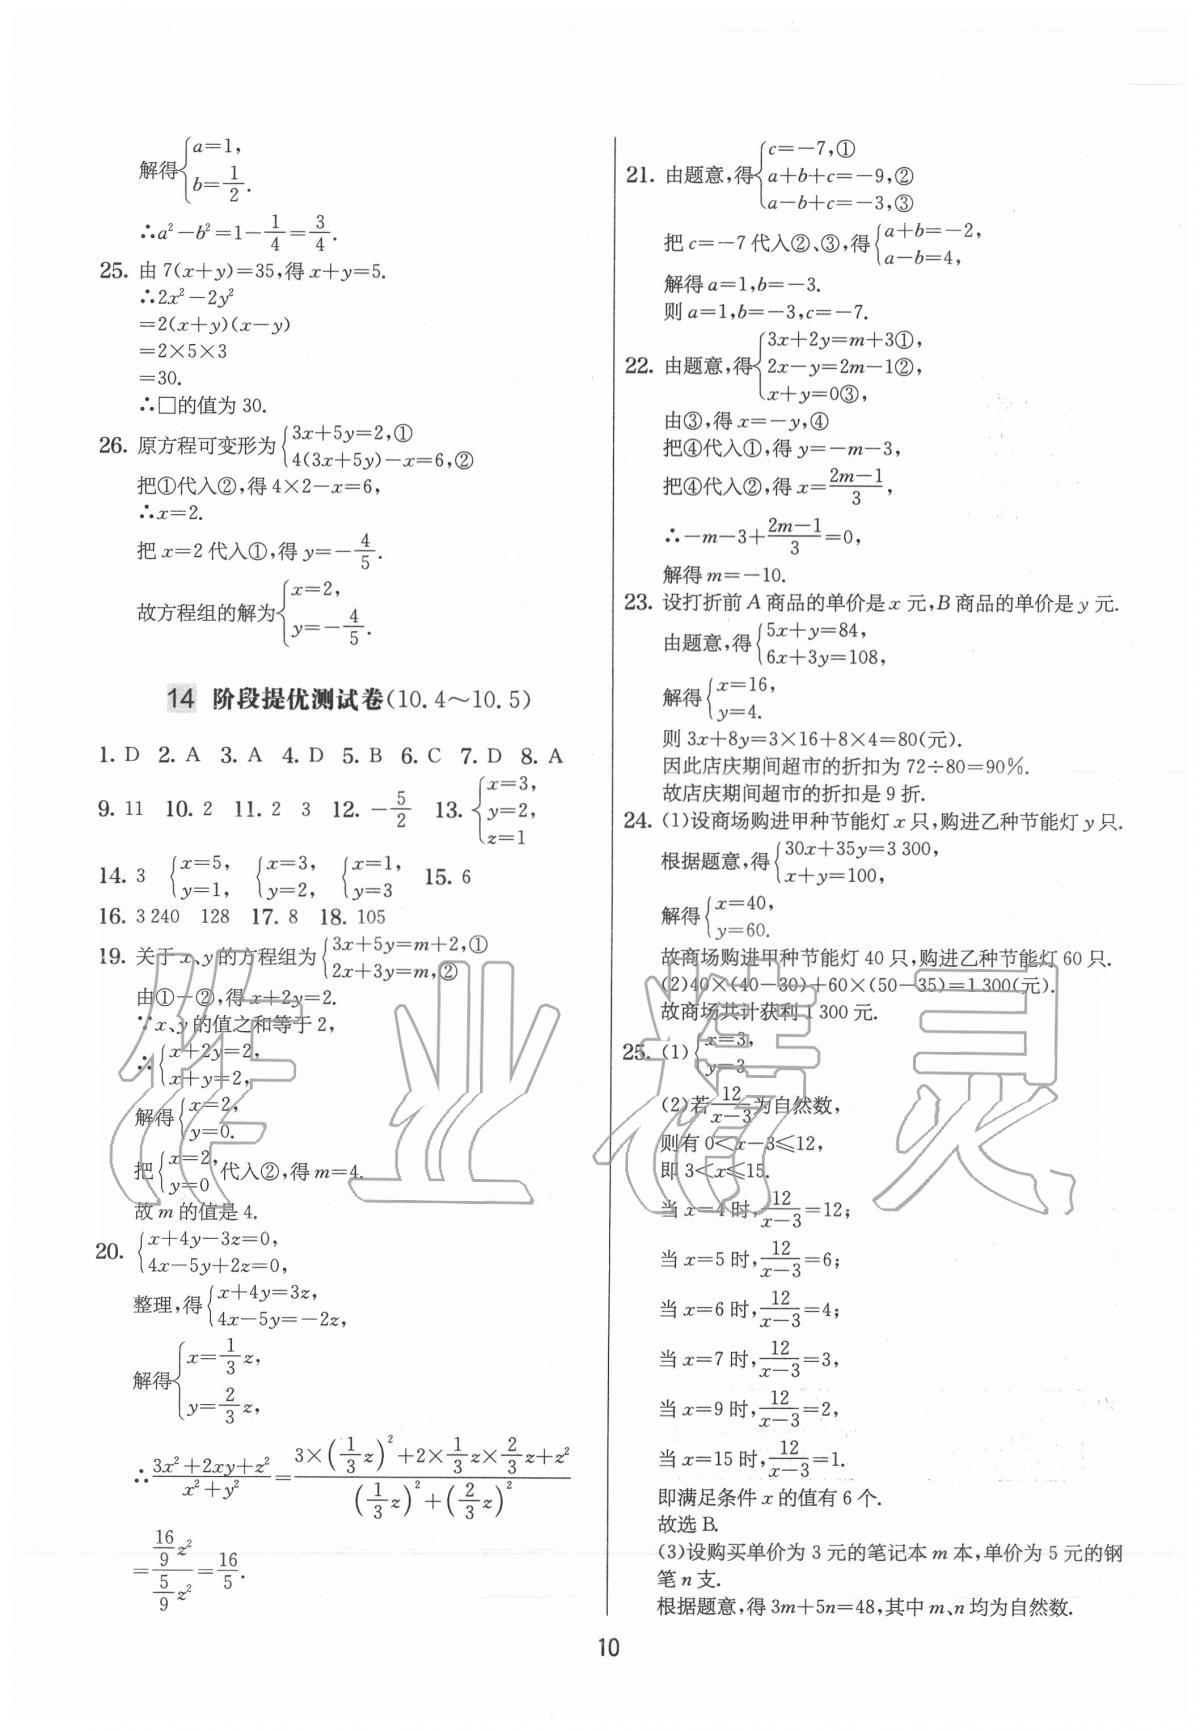 解得{a=1,
b=1/2.
∴a²-b²=1-1/4=3/4.
25. 由 7(x+y)=35,得 x+y=5.
∴2x²-2y²
=2(x+y)(x-y)
=2×5×3
=30.
∴□的值为 30.
26. 原方程可变形为{3x+5y=2,①
4(3x+5y)-x=6,②
把①代入②,得 4×2-x=6,
∴x=2.
把 x=2 代入①,得 y=-4/5.
故方程组的解为{x=2,
y=-4/5.
14 阶段提优测试卷(10.4～10.5)
1. D 2. A 3. A 4. D 5. B 6. C 7. D 8. A
9. 11 10. 2 11. 2 3 12. -5/2 13. {x=3,
y=2,
z=1
14. 3 {x=5, y=1, {x=3, y=2, {x=1, y=3 15. 6
16. 3 240 128 17. 8 18. 105
19. 关于 x、y 的方程组为{3x+5y=m+2,①
2x+3y=m,②
由①-②,得 x+2y=2.
∵x、y 的值之和等于 2,
∴{x+2y=2,
x+y=2,
解得{x=2,
y=0.
把{x=2, y=0 代入②,得 m=4.
故 m 的值是 4.
20. {x+4y-3z=0,
4x-5y+2z=0,
整理,得{x+4y=3z,
4x-5y=-2z,
解得{x=1/3 z,
y=2/3 z,
∴(3x²+2xy+z²)/(x²+y²)=(3×(1/3 z)²+2×1/3 z×2/3 z+z²)/((1/3 z)²+(2/3 z)²)
=(16/9 z²)/(5/9 z²)=16/5.
21. 由题意,得{c=-7,①
a+b+c=-9,②
a-b+c=-3,③
把 c=-7 代入②、③,得{a+b=-2,
a-b=4,
解得 a=1,b=-3.
则 a=1,b=-3,c=-7.
22. 由题意,得{3x+2y=m+3①,
2x-y=2m-1②,
x+y=0③,
由③,得 x=-y,④
把④代入①,得 y=-m-3,
把④代入②,得 x=(2m-1)/3,
∴-m-3+(2m-1)/3=0,
解得 m=-10.
23. 设打折前 A 商品的单价是 x 元,B 商品的单价是 y 元.
由题意,得{5x+y=84,
6x+3y=108,
解得{x=16,
y=4.
则 3x+8y=3×16+8×4=80(元).
因此店庆期间超市的折扣为 72÷80=90%.
故店庆期间超市的折扣是 9 折.
24. (1)设商场购进甲种节能灯 x 只,购进乙种节能灯 y 只.
根据题意,得{30x+35y=3 300,
x+y=100,
解得{x=40,
y=60.
故商场购进甲种节能灯 40 只,购进乙种节能灯 60 只.
(2)40×(40-30)+60×(50-35)=1 300(元).
故商场共计获利 1 300 元.
25. (1){x=3,
y=3
(2)若12/(x-3)为自然数,
则有 0<x-3≤12,
即 3<x≤15.
当 x=4 时,12/(x-3)=12;
当 x=5 时,12/(x-3)=6;
当 x=6 时,12/(x-3)=4;
当 x=7 时,12/(x-3)=3,
当 x=9 时,12/(x-3)=2,
当 x=15 时,12/(x-3)=1.
即满足条件 x 的值有 6 个.
故选 B.
(3)设购买单价为 3 元的笔记本 m 本,单价为 5 元的钢
笔 n 支.
根据题意,得 3m+5n=48,其中 m、n 均为自然数.
作业精灵
10